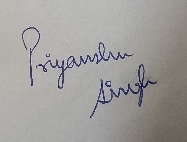 Priyanshu
Singh